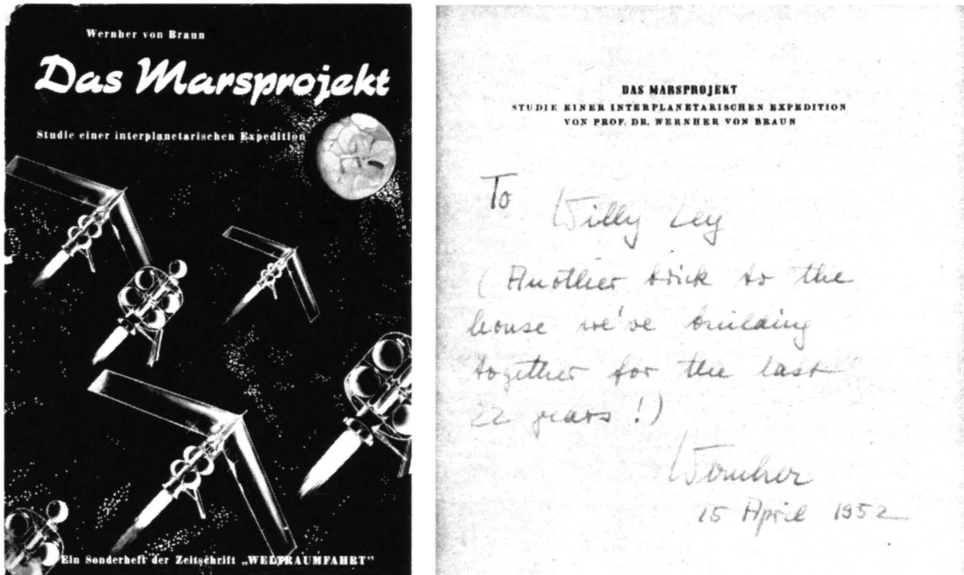 Wernher von Braun
Das Marsprojekt
Studie einer interplanetarischen Expedition
Ein Sonderheft der Zeitschrift „WELTRAUMFAHRT"
DAS MARSPROJEKT
STUDIE EINER INTERPLANETARISCHEN EXPEDITION
VON PROF. DR. WERNHER VON BRAUN
To
Willy Ley
(Another brick to the
house we've building
together for the last
22 years!)
Wernher
15 April 1952